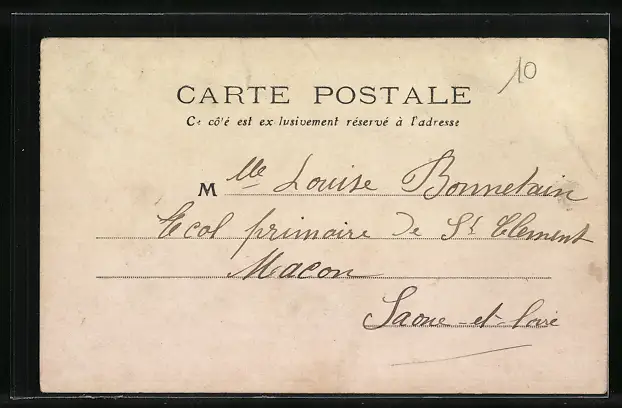 10
CARTE POSTALE
Ce côté est exclusivement réservé à l'adresse
M lle Louise Bonnetain
Ecol primaire De St Clement
Macon
Saone-et-Loire